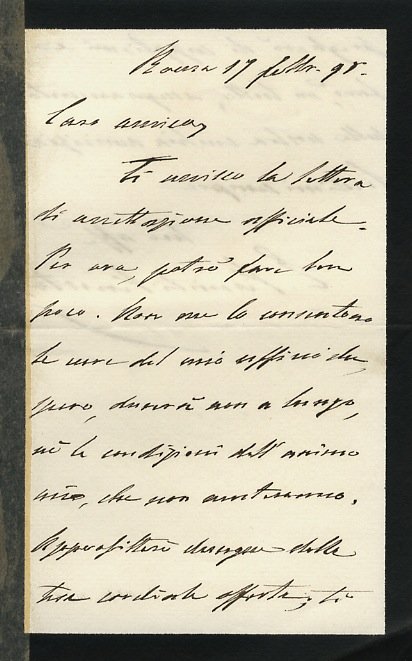 Roma 17 febbr. 98.
Caro amico,
Ti scrivo la lettera
di accettazione officiale.
Per ora, potrò fare ben
poco. Non me lo consentono
le cure del mio ufficio che,
spero, durerà non a lungo,
nè le condizioni dell'animo
mio, che non muteranno.
Approfitterò dunque della
tua cordiale offerta; ti